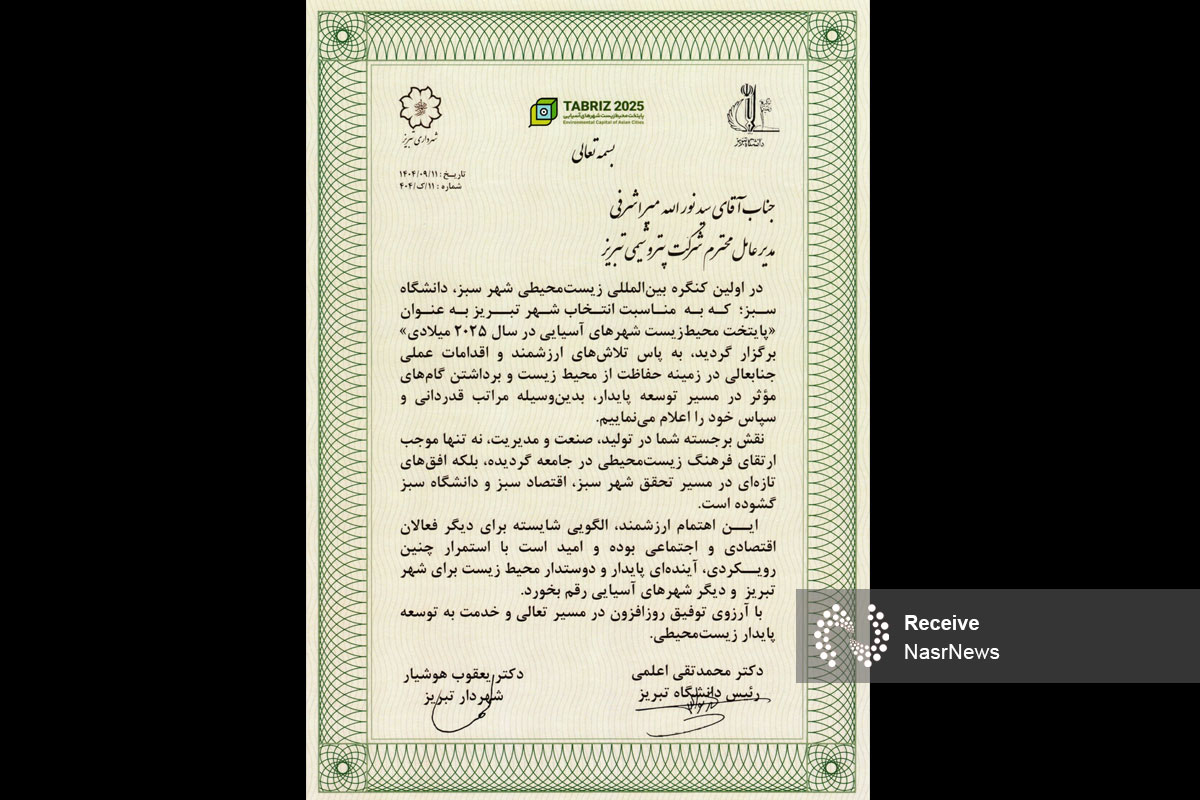 شهرداری تبریز
TABRIZ 2025
پایتخت محیط‌زیست شهرهای آسیایی
Environmental Capital of Asian Cities
دانشگاه تبریز
بسمه تعالی
تاریخ: ۱۴۰۴/۰۹/۱۱
شماره: ۱۱/ک/۴۰۴
جناب آقای سید نورالله میراشرفی
مدیرعامل محترم شرکت پتروشیمی تبریز
در اولین کنگره بین‌المللی زیست‌محیطی شهر سبز، دانشگاه
سبز؛ که به مناسبت انتخاب شهر تبریز به عنوان
«پایتخت محیط‌زیست شهرهای آسیایی در سال ۲۰۲۵ میلادی»
برگزار گردید، به پاس تلاش‌های ارزشمند و اقدامات عملی
جنابعالی در زمینه حفاظت از محیط زیست و برداشتن گام‌های
مؤثر در مسیر توسعه پایدار، بدین‌وسیله مراتب قدردانی و
سپاس خود را اعلام می‌نماییم.
نقش برجسته شما در تولید، صنعت و مدیریت، نه تنها موجب
ارتقای فرهنگ زیست‌محیطی در جامعه گردیده، بلکه افق‌های
تازه‌ای در مسیر تحقق شهر سبز، اقتصاد سبز و دانشگاه سبز
گشوده است.
این اهتمام ارزشمند، الگویی شایسته برای دیگر فعالان
اقتصادی و اجتماعی بوده و امید است با استمرار چنین
رویکردی، آینده‌ای پایدار و دوستدار محیط زیست برای شهر
تبریز و دیگر شهرهای آسیایی رقم بخورد.
با آرزوی توفیق روزافزون در مسیر تعالی و خدمت به توسعه
پایدار زیست‌محیطی.
دکتر محمدتقی اعلمی
رئیس دانشگاه تبریز
دکتر یعقوب هوشیار
شهردار تبریز
Receive
NasrNews